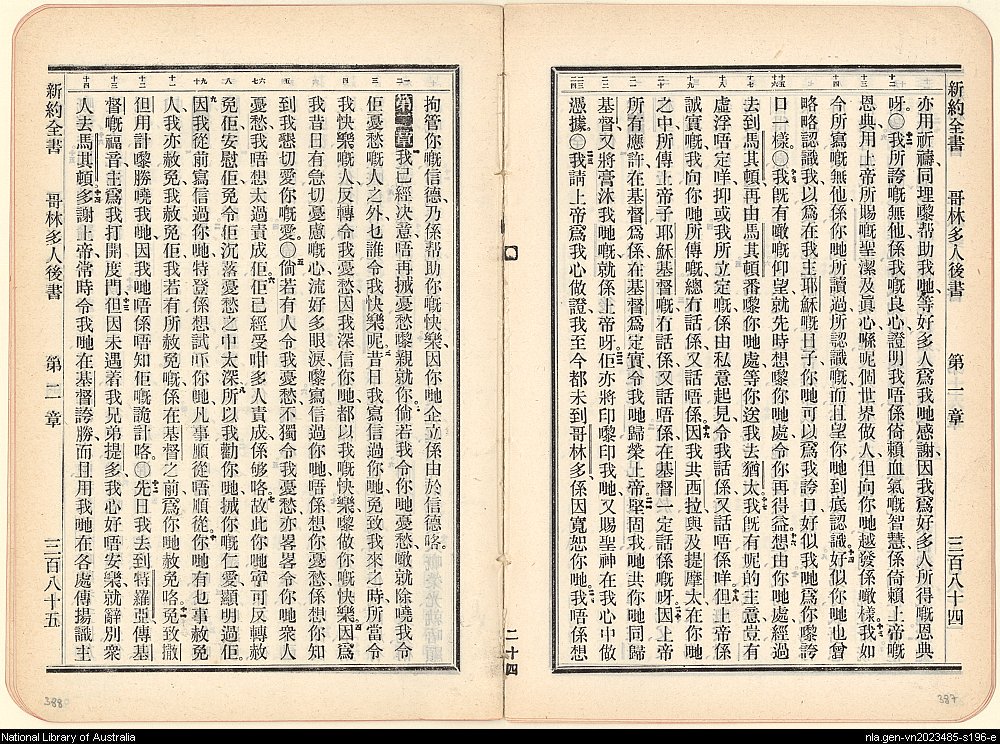 新約全書 哥林多人後書 第一章 三百八十四
亦用祈禱、同埋嚟帮助我哋等好多人爲我哋感謝、因我爲好多人所得嘅恩典
呀。○我所誇嘅無他、係我嘅良心、證明我唔係倚賴血氣嘅智慧、係倚賴上帝嘅
恩典、用上帝所賜嘅聖潔、及眞心、喺呢個世界做人、但向你哋越發係噉樣。我如
今所寫嘅無他、係你哋所讀過所認識嘅、而且望你哋到底認識、好似你哋也曾
略略認識我、以爲在我主耶穌嘅日子、你哋可以爲我誇口、好似我哋爲你嚟誇
口一樣。○我旣有噉嘅仰望、就先時想嚟你哋處、令你再得益。想由你哋處經過
去到馬其頓、再由馬其頓番嚟你哋處、等你送我去猶太。我旣有呢的主意、豈有
虛浮唔定咩、抑或我所立定嘅、係由私意起見、令我話係、又話唔係咩。但上帝係
誠實嘅、我向你哋所傳嘅、總冇話係、又話唔係。因我共西拉、與及提摩太、在你哋
之中、所傳上帝子耶穌基督嘅、冇話係、又話唔係、在基督一定話係嘅呀。因上帝
所有應許、在基督爲係、在基督爲定實、令我哋歸榮上帝。堅固我哋共你哋同歸
基督、又將膏沐我哋嘅、就係上帝呀。佢亦將印嚟印我哋、又賜聖神在我心中做
憑據。○我請上帝爲我心做證、我至今都未到哥林多、係因寬恕你哋。我唔係想
二十四
新約全書 哥林多人後書 第二章 三百八十五
拘管你嘅信德、乃係帮助你嘅快樂、因你哋企立係由於信德咯。
第二章 我已經決意、唔再拭憂愁嚟親就你。倘若我令你哋憂愁、噉就除曉我令
佢憂愁嘅人之外、乜誰令我快樂呢。昔日我寫信過你哋、免致我來之時、所當令
我快樂嘅人、反轉令我憂愁、因我深信你哋都以我嘅快樂、嚟做你嘅快樂。因爲
我昔日有急切憂慮嘅心、流好多眼淚、嚟寫信過你哋、唔係想你憂愁、係想你知
到我懇切愛你嘅愛。○倘若有人令我憂愁、不獨令我憂愁、亦畧畧令你哋衆人
憂愁、我唔想太過責成佢。佢已經受咁多人責成、係够咯。故此你哋寧可反轉赦
免佢、安慰佢、免令佢沉落憂愁之中太深。所以我勸你哋、拭你嘅仁愛、顯明過佢。
因我從前寫信過你哋、特登係想試吓你哋、凡事順從唔順從。你哋有乜事赦免
人、我亦赦免、我赦免佢、我若有所赦免嘅、係在基督之前、爲你哋赦免咯。免致撒
但用計嚟勝曉我哋、因我哋唔係唔知佢嘅詭計咯。○先日我去到特羅亞、傳基
督嘅福音、主爲我打開度門。但因未遇着我兄弟提多、我心好唔安樂、就辭別衆
人、去馬其頓。多謝上帝、常時令我哋在基督誇勝、而且用我哋在各處傳揚識主
388
387
National Library of Australia
nla.gen-vn2023485-s196-e